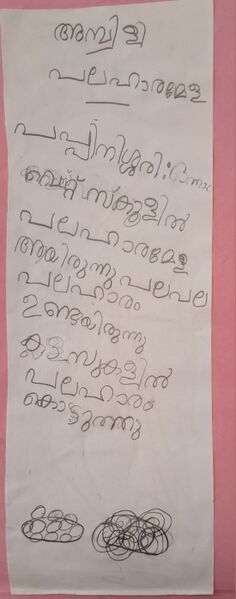 അമ്പിളി
പലഹാരമേള
പാപ്പിനിശ്ശേരി: ഒന്നാം
വെസ്റ്റ് സ്കൂളിൽ
പലഹാരമേള
ആയിരുന്നു പലപല
പലഹാരം
ഉണ്ടയിരുന്നു
ക്ലാസുകളിൽ
പലഹാരം
കൊട്ടുത്തു